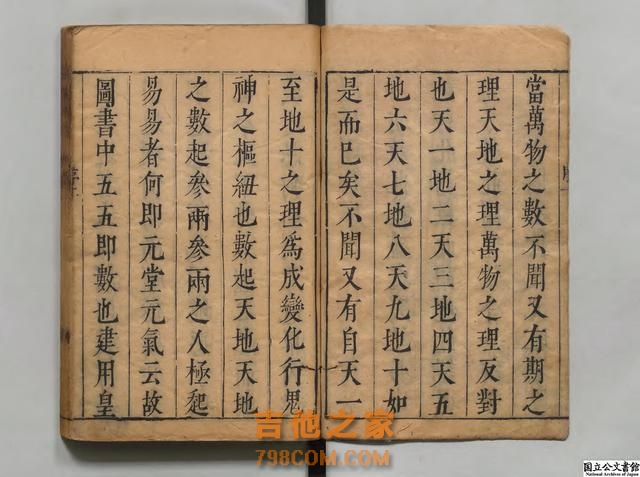 當萬物之數不聞又有期之
理天地之理萬物之理反對
也天一地二天三地四天五
地六天七地八天九地十如
是而已矣不聞又有自天一
至地十之理爲成變化行鬼
神之樞紐也數起天地天地
之數起參兩參兩之人極起
易易者何即元堂元氣云故
圖書中五五即數也建用皇
吉他之家
798COM.COM
国立公文書館
National Archives of Japan